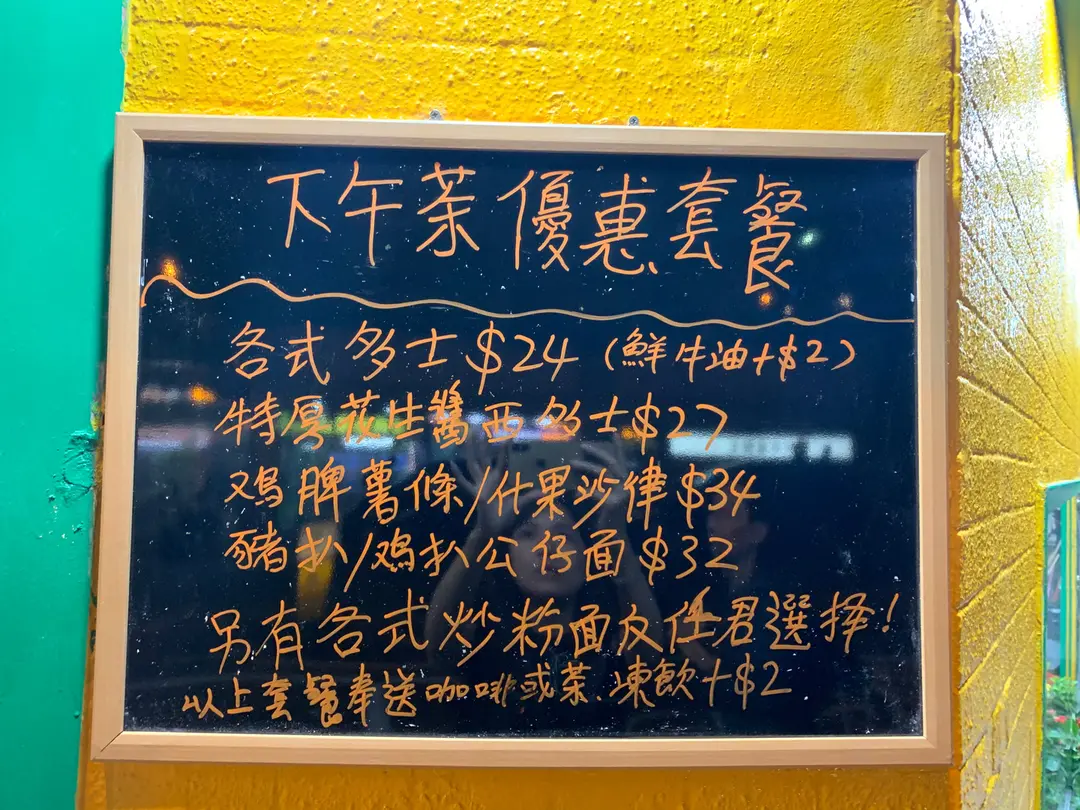 下午茶優惠套餐
各式多士$24（鮮牛油+$2）
特厚花生醬西多士$27
鸡脾薯條/什果沙律$34
豬扒/鸡扒公仔面$32
另有各式炒粉面友任君選择!
以上套餐奉送咖啡或茶.凍飲+$2